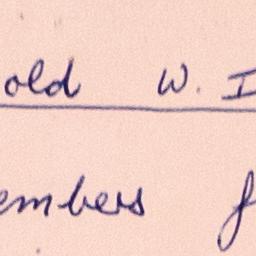 old W. I
embers f